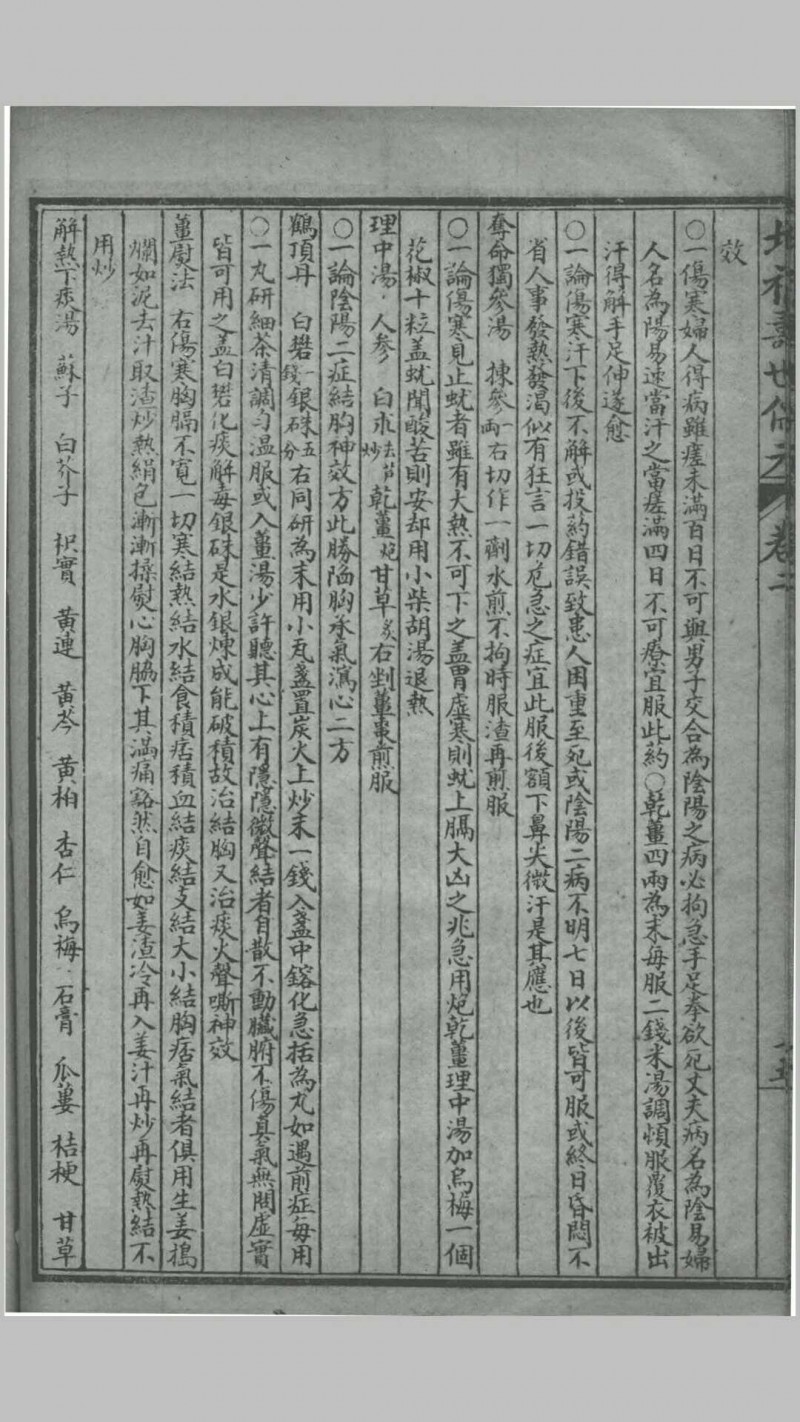 壽世保元 卷二
效
○一傷寒婦人得病雖瘥未滿百日不可與男子交合為陰陽之病必拘急手足拳欲死丈夫病名為陰易婦
人名為陽易速當汗之當瘥滿四日不可療宜服此药○乾薑四兩為末每服二錢米湯調頓服覆衣被出
汗得解手足伸遂愈
○一論傷寒汗下後不解或投药錯誤致患人困重至死或陰陽二病不明七日以後皆可服或終日昏悶不
省人事發熱發渴似有狂言一切危急之症宜此服後額下鼻尖微汗是其應也
奪命獨參湯 揀參一兩 右切作一劑水煎不拘時服渣再煎服
○一論傷寒見止蚘者雖有大熱不可下之盖胃虛寒則蚘上膈大凶之兆急用炮乾薑理中湯加烏梅一個
花椒十粒盖蚘聞酸苦則安却用小柴胡湯退熱
理中湯 人參 白朮去芦炒 乾薑炮 甘草炙 右剉薑棗煎服
○一論陰陽二症結胸神效方此勝陥胸承氣瀉心二方
鶴頂丹 白礬一錢 銀硃五分 右同研為末用小瓦盞置炭火上炒末一錢入盞中鎔化急括為丸如遇前症每用
○一丸研細茶清調勻温服或入薑湯少許聽其心上有隱隱微聲結者自散不動臟腑不傷真氣無問虛實
皆可用之盖白礬化痰解毒銀硃是水銀煉成能破積故治結胸又治痰火聲嘶神效
薑熨法 右傷寒胸膈不寬一切寒結熱結水結食積痞積血結痰結支結大小結胸痞氣結者俱用生姜搗
爛如泥去汁取渣炒熱絹包漸漸揉熨心胸脇下其滿痛豁然自愈如姜渣冷再入姜汁再炒再熨熱結不
用炒
解熱下痰湯 蘇子 白芥子 枳實 黄連 黄芩 黄柏 杏仁 烏梅 石膏 瓜蔞 桔梗 甘草